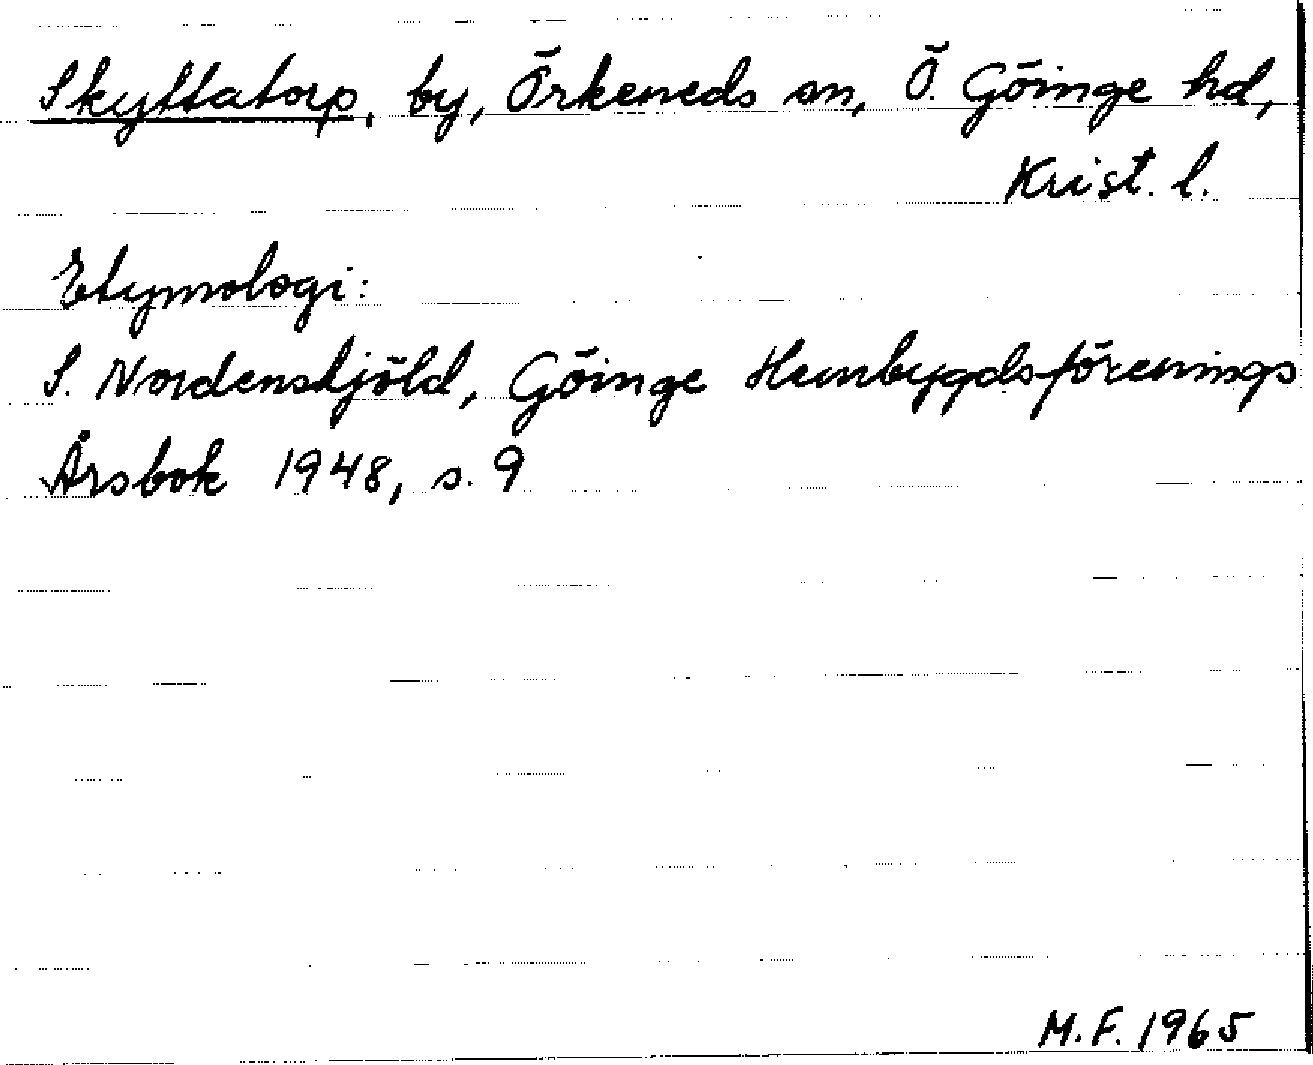 Skyttatorp, by, Örkeneds sn, Ö. Göinge hd,
Krist. l.
Etymologi:
S. Nordenskjöld, Göinge Hembygdsförenings
Årsbok 1948, s. 9
M.F. 1965